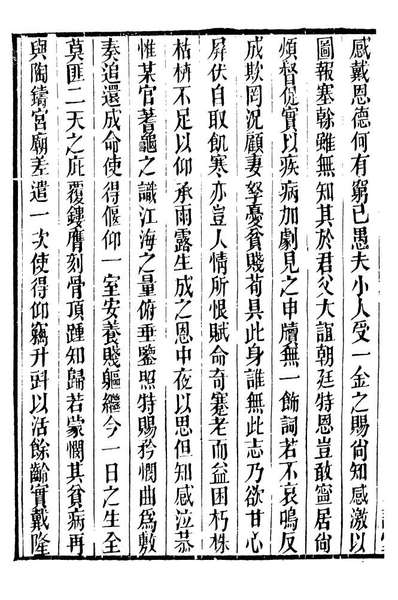 感戴恩德何有窮已愚夫小人受一金之賜尙知感激以
圖報塞翰雖無知其於君父大誼朝廷特恩豈敢寧居尙
煩督促實以疾病加劇見之申牘無一飾詞若不哀鳴反
成欺罔況顧妻孥憂貧賤荀具此身誰無此志乃欲甘心
屏伏自取飢寒亦豈人情所恨賦命奇蹇老而益困朽株
枯枿不足以仰承雨露生成之恩中夜以思但知感泣恭
惟某官蓍龜之識江海之量俯垂鑒照特賜矜憫曲爲敷
奏追還成命使得偃仰一室安養賤軀繼今一日之生全
莫匪二天之庇覆鏤膺刻骨頂踵知歸若蒙憫其貧病再
與陶鑄宮廟差遣一次使得仰竊升㪷以活餘齡實戴隆